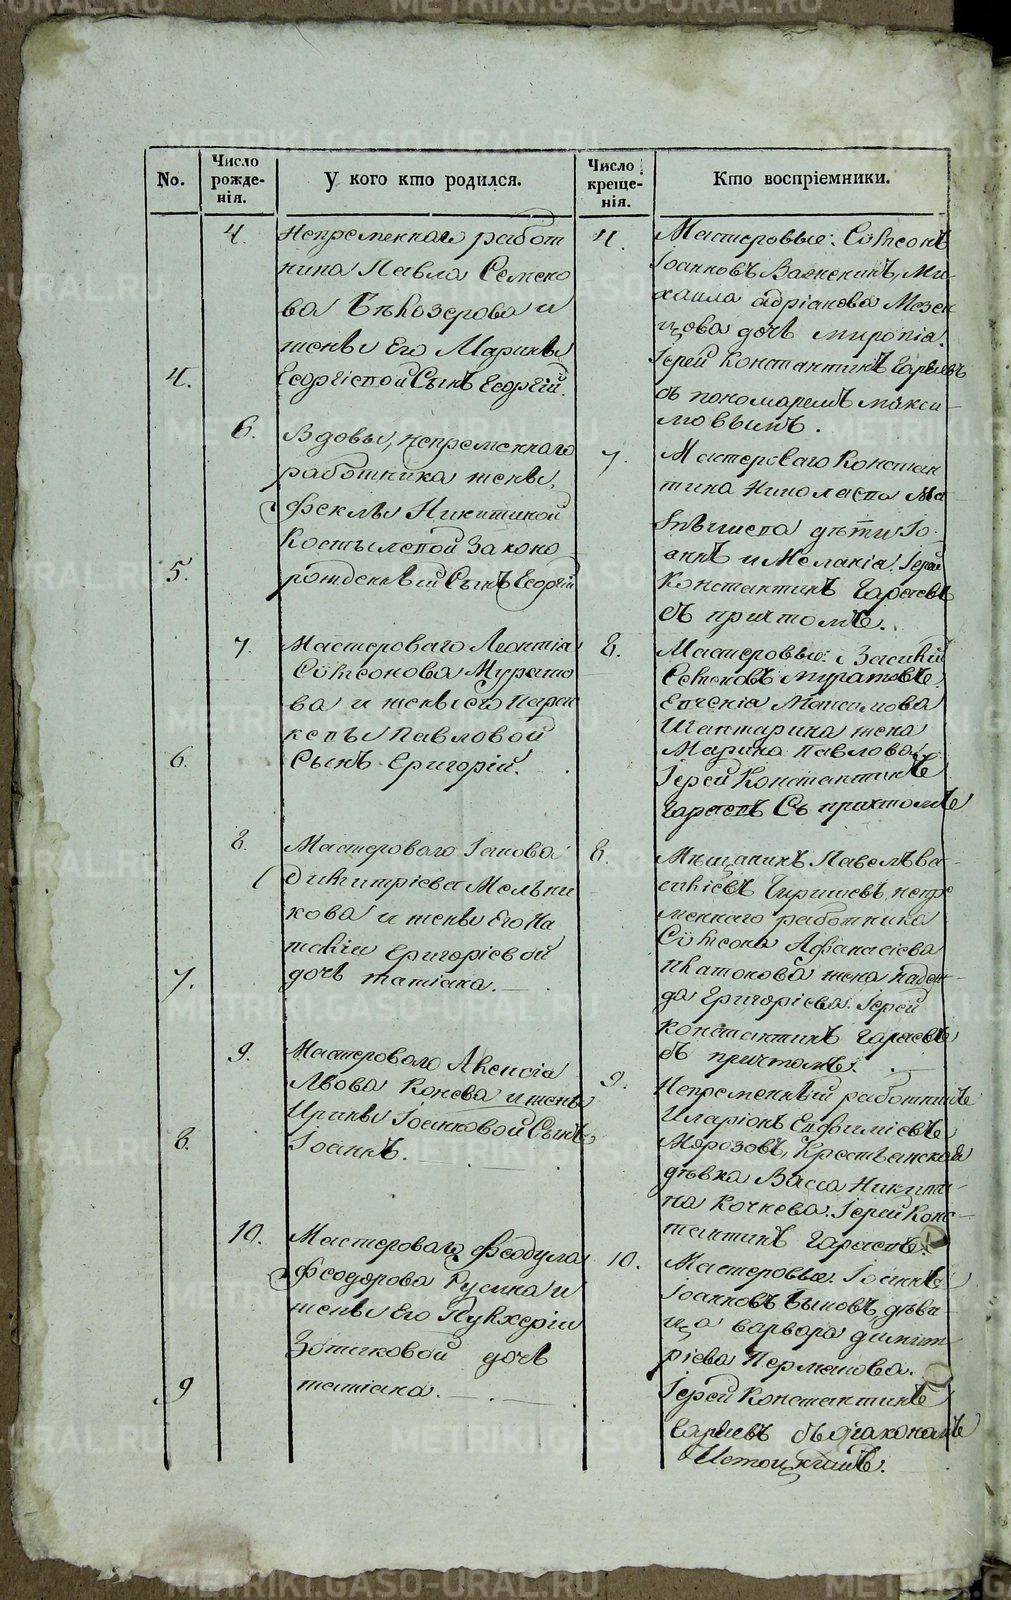 METRIKI.GASO-URAL.RU
No.
Число рожденія.
У кого кто родился.
Число крещенія.
Кто воспріемники.
4.
4.
Непременнаго работ
ника Павла Семено
ва Бѣлозерова и
жены Его Марины
Георгіевой Сынъ Георгій.
4.
Мастеровые: Сѵмеонъ
Іоанновъ Важенинъ, Ми-
хаила Адріанова Мезен
цова дочь
Іерей Константинъ
съ пономаремъ Макси-
мовымъ.
5.
6.
Вдовы, непременнаго
работника жены,
Феклы Никитиной
Костылевой Законо
рожденный Сынъ Георгій
7.
Мастероваго Констан
тина Николаева
дѣти Іо-
аннъ и Меланія. Іерей
Константинъ
съ причтомъ.
6.
7.
Мастероваго Леонтія
Сѵмеонова Мурато
ва и жены его Парас
кевы Павловой
Сынъ Григорій.
8.
Мастеровые: Василій
Семеновъ Муратовъ
Евгенія Максимова
жена
Марина Павлова.
Іерей Константинъ
Съ причтомъ
7.
8.
Мастероваго Іакова
Димитріева Мельни
кова и жены Его На
таліи Григоріевой
дочь Татіана.
8.
Мѣщанинъ Павелъ Ва-
силіевъ непре
меннаго работника
Сѵмеона Афанасіева
Платонова жена Надеж-
да Григоріева. Іерей
Константинъ
съ причтомъ.
8.
9.
Мастероваго Алексія
Львова Конева и жены
Ирины Іоанновой Сынъ
Іоаннъ.
9.
Непременный работникъ
Иларіонъ Евфиміевъ
Морозовъ, Крестьянская
дѣвка Васса Никити-
на Кочнева. Іерей Конс-
тантинъ
9
10.
Мастероваго Феодула
Феодорова Русина и
жены Его Пулхеріи
Зотиковой дочь
Татіана.
10.
Мастеровые: Іоаннъ
Іоанновъ Быковъ, дѣви-
ца Варвара Димит-
ріева Пермякова.
Іерей Константинъ
съ діакономъ